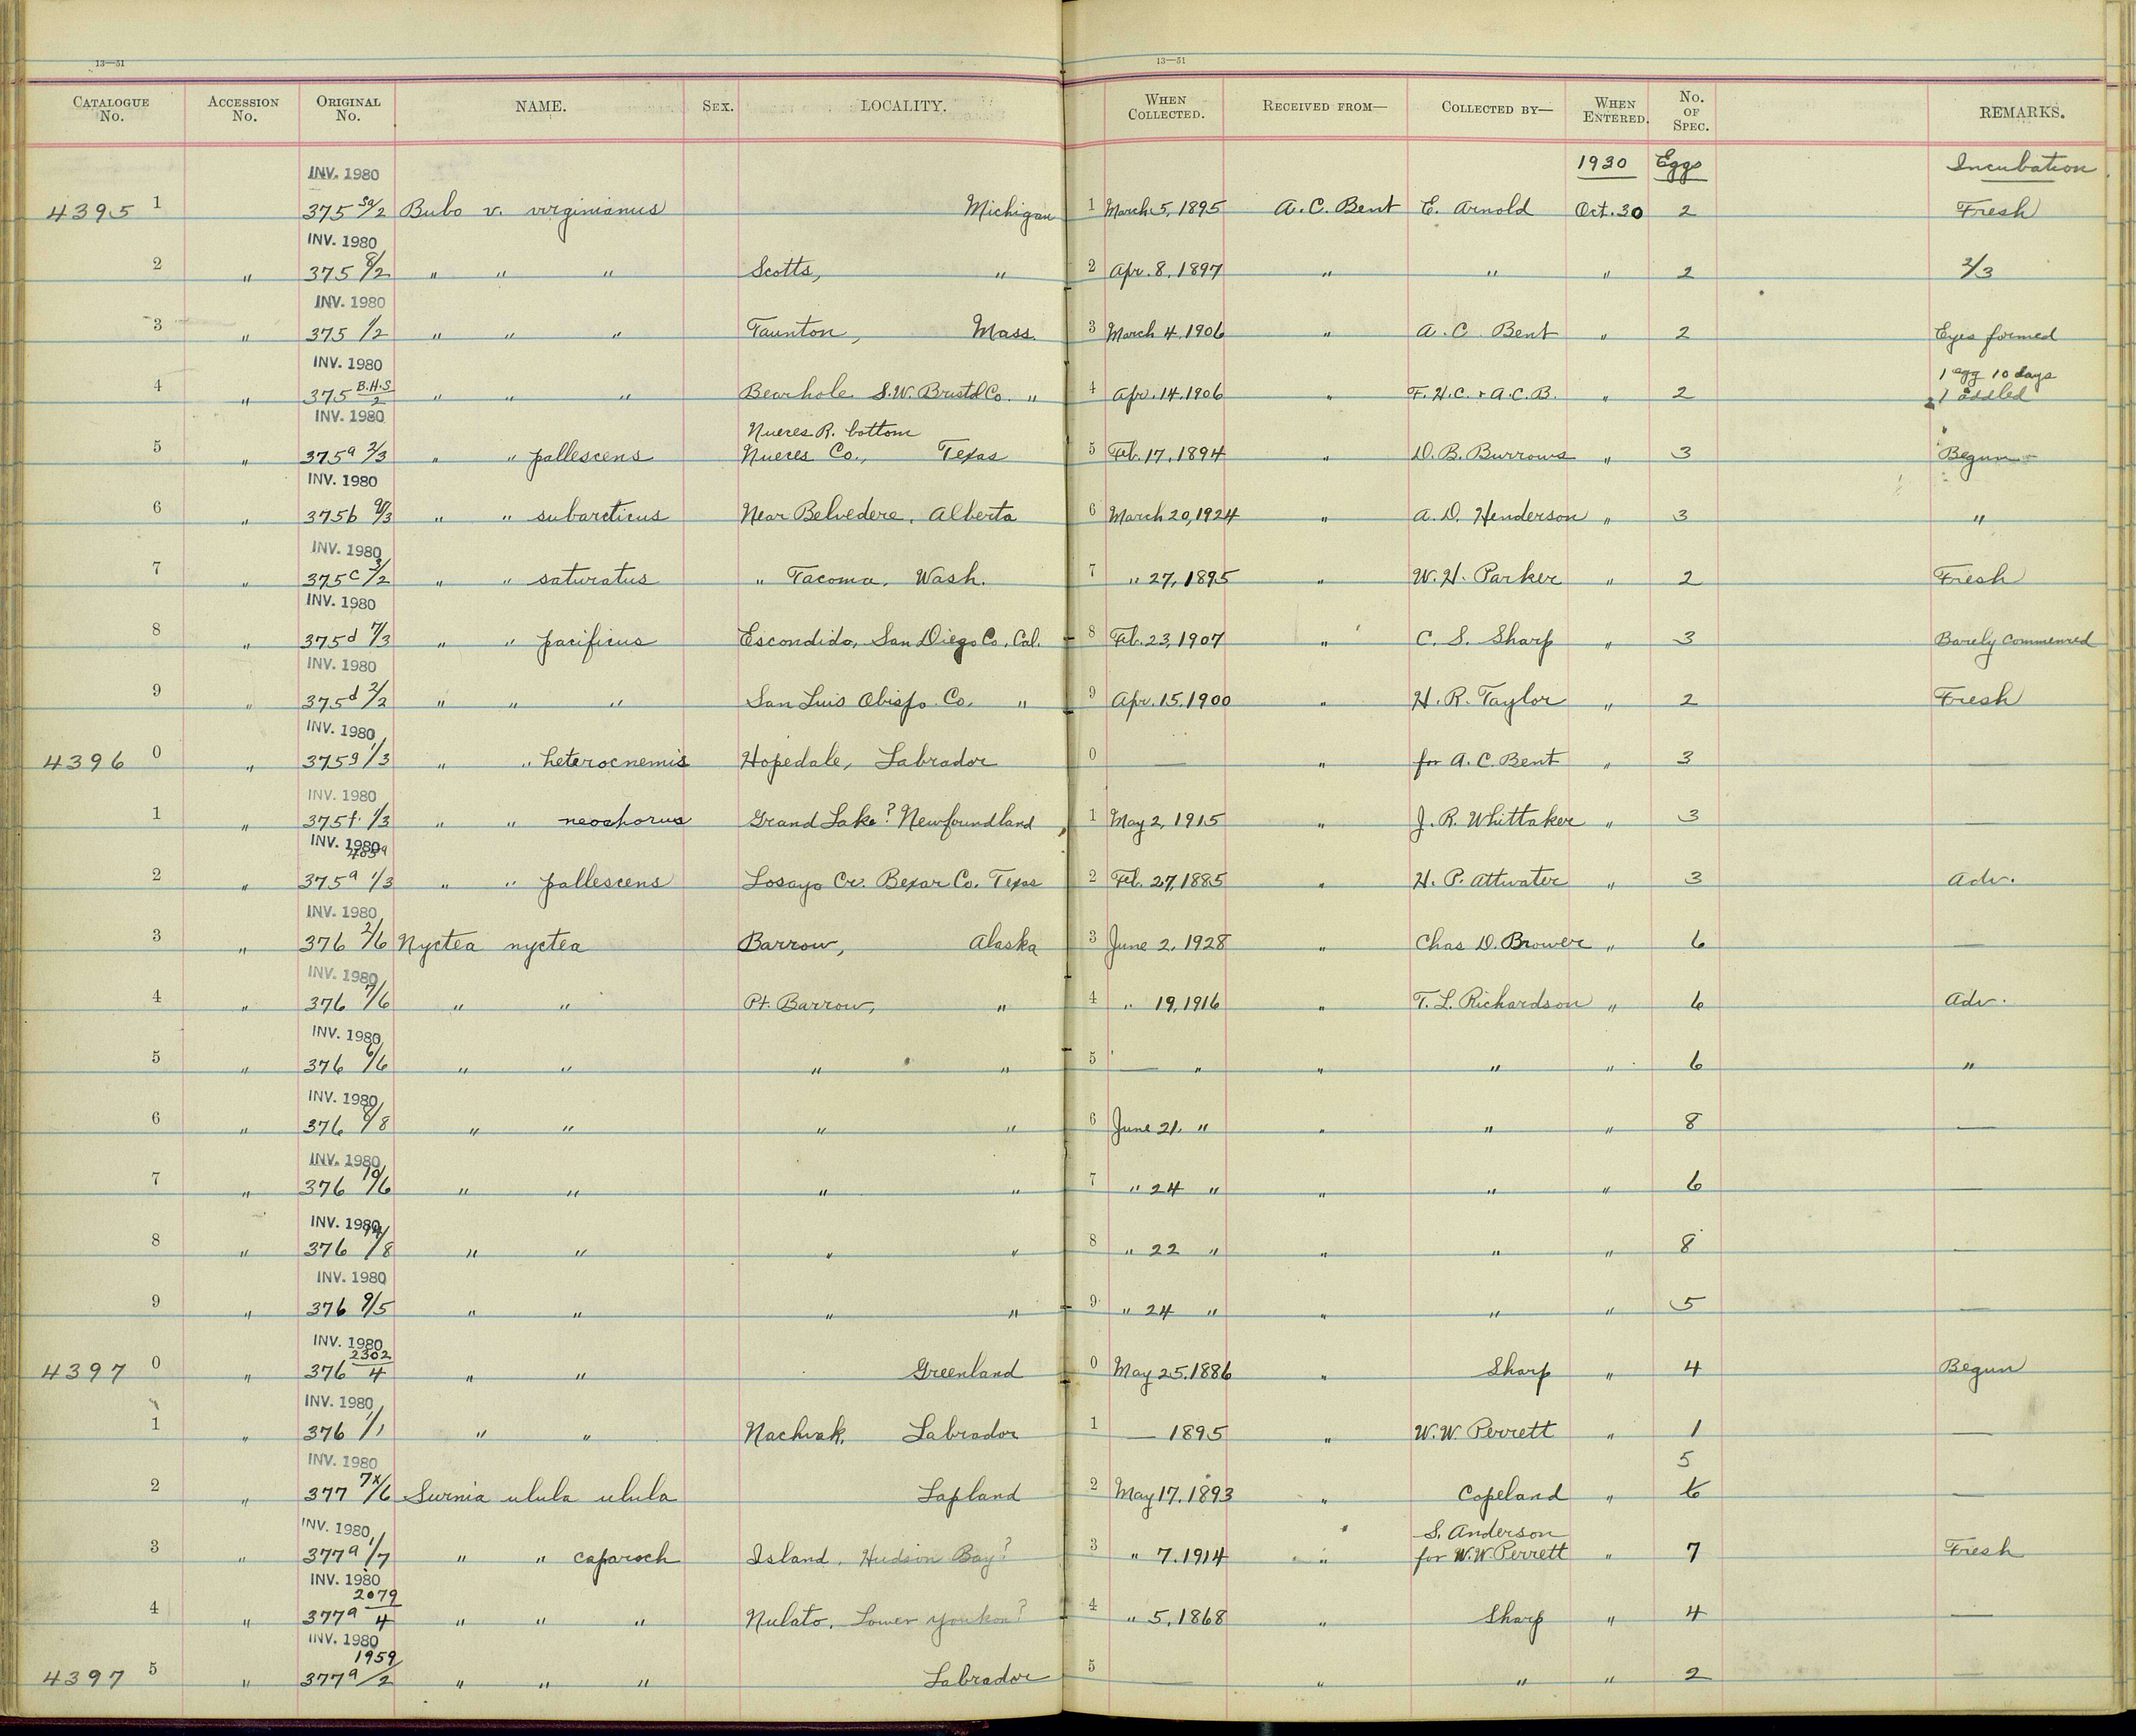 13—51 13—51
CATALOGUE No. ACCESSION No. ORIGINAL No. NAME. SEX. LOCALITY. WHEN COLLECTED. RECEIVED FROM— COLLECTED BY— WHEN ENTERED. No. OF SPEC. REMARKS.
1930 Eggs Incubation
INV. 1980
4395 1 375 5a/2 Bubo v. virginianus Michigan 1 March 5, 1895 A. C. Bent E. Arnold Oct. 30 2 Fresh
INV. 1980
2 " 375 8/2 " " " Scotts, " 2 Apr. 8, 1897 " " " 2 2/3
INV. 1980
3 " 375 1/2 " " " Taunton, Mass. 3 March 4, 1906 " A. C. Bent " 2 Eyes formed
INV. 1980
1 egg 10 days
4 " 375 B.H.S/2 " " " Bearhole S.W. Bristol Co. " 4 Apr. 14, 1906 " F. H. C. + A. C. B. " 2 1 addled
INV. 1980
Nueces R. bottom
5 " 375a 2/3 " " pallescens Nueces Co., Texas 5 Feb. 17, 1894 " D. B. Burrows " 3 Begun
INV. 1980
6 " 375b 9/3 " " subarcticus Near Belvedere, Alberta 6 March 20, 1924 " A. D. Henderson " 3 "
INV. 1980
7 " 375c 3/2 " " saturatus " Tacoma, Wash. 7 " 27, 1895 " W. H. Parker " 2 Fresh
INV. 1980
8 " 375d 7/3 " " pacificus Escondido, San Diego Co., Cal. 8 Feb. 23, 1907 " C. S. Sharp " 3 Barely Commenced
INV. 1980
9 " 375d 2/2 " " " San Luis Obispo Co. " 9 Apr. 15, 1900 " H. R. Taylor " 2 Fresh
INV. 1980
4396 0 " 375g 1/3 " " heterocnemis Hopedale, Labrador 0 — " for A. C. Bent " 3 —
INV. 1980
1 " 375f. 1/3 " " neochorus Grand Lake? Newfoundland 1 May 2, 1915 " J. R. Whittaker " 3 —
INV. 1980
2 " 375a 1/3 " " pallescens Losayo Cr. Bexar Co. Texas 2 Feb. 27, 1885 " H. P. Attwater " 3 Adv.
INV. 1980
3 " 376 2/6 Nyctea nyctea Barrow, Alaska 3 June 2, 1928 " Chas D. Brower " 6 —
INV. 1980
4 " 376 7/6 " " Pt. Barrow, " 4 " 19, 1916 " T. L. Richardson " 6 Adv.
INV. 1980
5 " 376 6/6 " " " " 5 — " " " " 6 "
INV. 1980
6 " 376 8/8 " " " " 6 June 21, " " " " 8 —
INV. 1980
7 " 376 10/6 " " " " 7 " 24 " " " " 6 —
INV. 1980
8 " 376 14/8 " " " " 8 " 22 " " " " 8 —
INV. 1980
9 " 376 9/5 " " " " 9 " 24 " " " " 5 —
INV. 1980
4397 0 " 376 2302/4 " " Greenland 0 May 25, 1886 " Sharp " 4 Begun
INV. 1980
1 " 376 1/1 " " Nachvak, Labrador 1 — 1895 " W. W. Perrett " 1 —
INV. 1980 5
2 " 377 7x/6 Surnia ulula ulula Lapland 2 May 17, 1893 " Copeland " 6 —
INV. 1980
S. Anderson
3 " 377a 1/7 " " caparoch Island, Hudson Bay? 3 " 7, 1914 " for W. W. Perrett " 7 Fresh
INV. 1980
4 " 377a 2079/4 " " " Nulato, Lower Youkon? 4 " 5, 1868 " Sharp " 4 —
INV. 1980
4397 5 " 377a 1959/2 " " " Labrador 5 — " " " 2 —